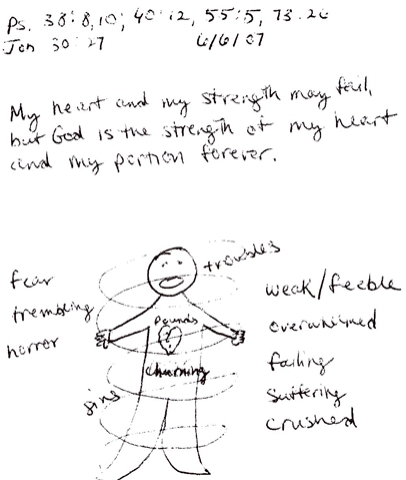 Ps. 38:8,10; 40:12, 55:5, 73:26
30:27
6/6/07
My heart and my strength may fail,
but God is the strength of my heart
and my portion forever.
troubles
fear
trembling
horror
pounds
churning
sins
weak/feeble
overwhelmed
failing
suffering
crushed